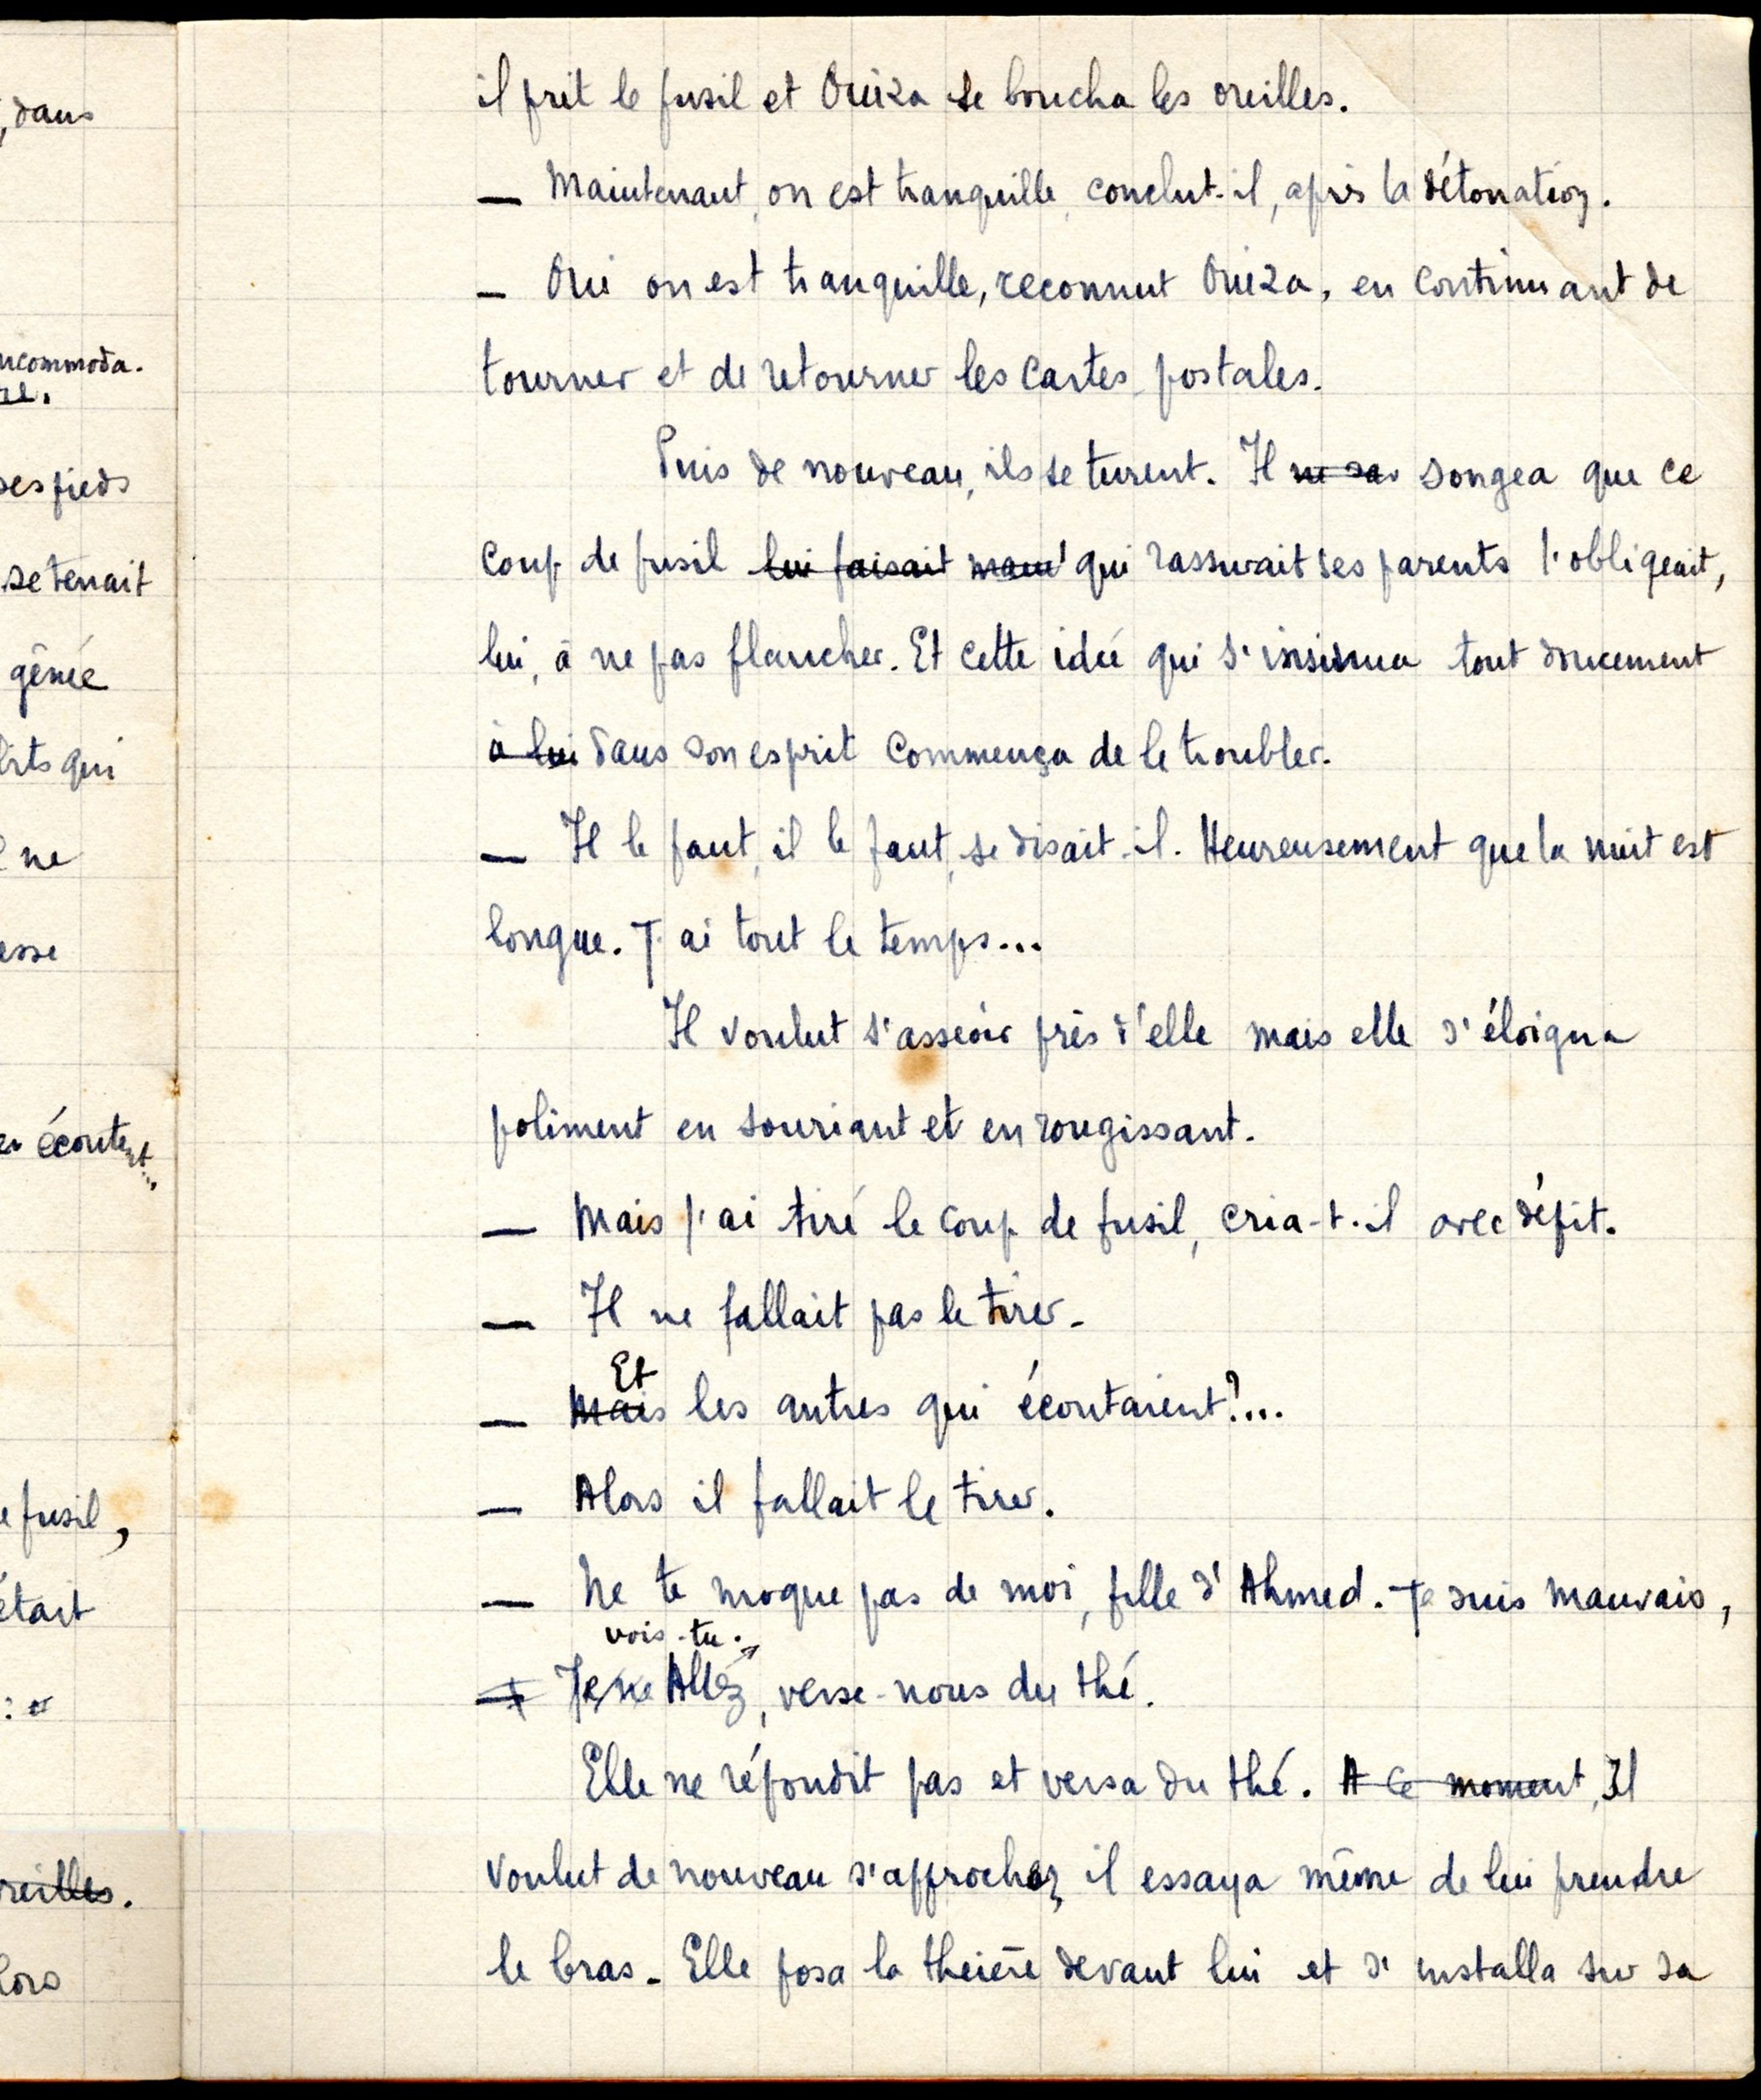 , dans
ncommoda.
ses pieds
se tenait
gênée
qui
ne
esse
écoutent...
fusil,
était
reilles.
lors
il prit le fusil et Ouiza se boucha les oreilles.
— Maintenant, on est tranquille, conclut-il, après la détonation.
— Oui on est tranquille, reconnut Ouiza, en continuant de
tourner et de retourner les cartes postales.
Puis de nouveau, ils se turent. Il ne sav songea que ce
coup de fusil lui faisait qui rassurait ses parents l'obligeait,
lui, à ne pas flancher. Et cette idée qui s'insinua tout doucement
à lui dans son esprit commença de le troubler.
— Il le faut, il le faut, se disait-il. Heureusement que la nuit est
longue. J'ai tout le temps...
Il voulut s'asseoir près d'elle mais elle s'éloigna
poliment en souriant et en rougissant.
— Mais j'ai tiré le coup de fusil, cria-t-il avec dépit.
— Il ne fallait pas le tirer.
Et
— Mais les autres qui écoutaient?...
— Alors il fallait le tirer.
— Ne te moque pas de moi, fille d'Ahmed. Je suis mauvais,
vois-tu.
— Je ne Allez, verse-nous du thé.
Elle ne répondit pas et versa du thé. A ce moment, Il
voulut de nouveau s'approcher, il essaya même de lui prendre
le bras. Elle posa la théière devant lui et s'installa sur sa